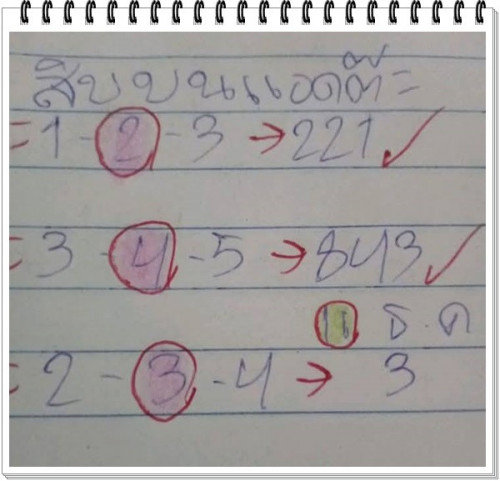 สิบบนแอดต๊ะ
= 1 - 2 - 3 → 221 ✓
= 3 - 4 - 5 → 843 ✓
16 ธ.ค
= 2 - 3 - 4 → 3